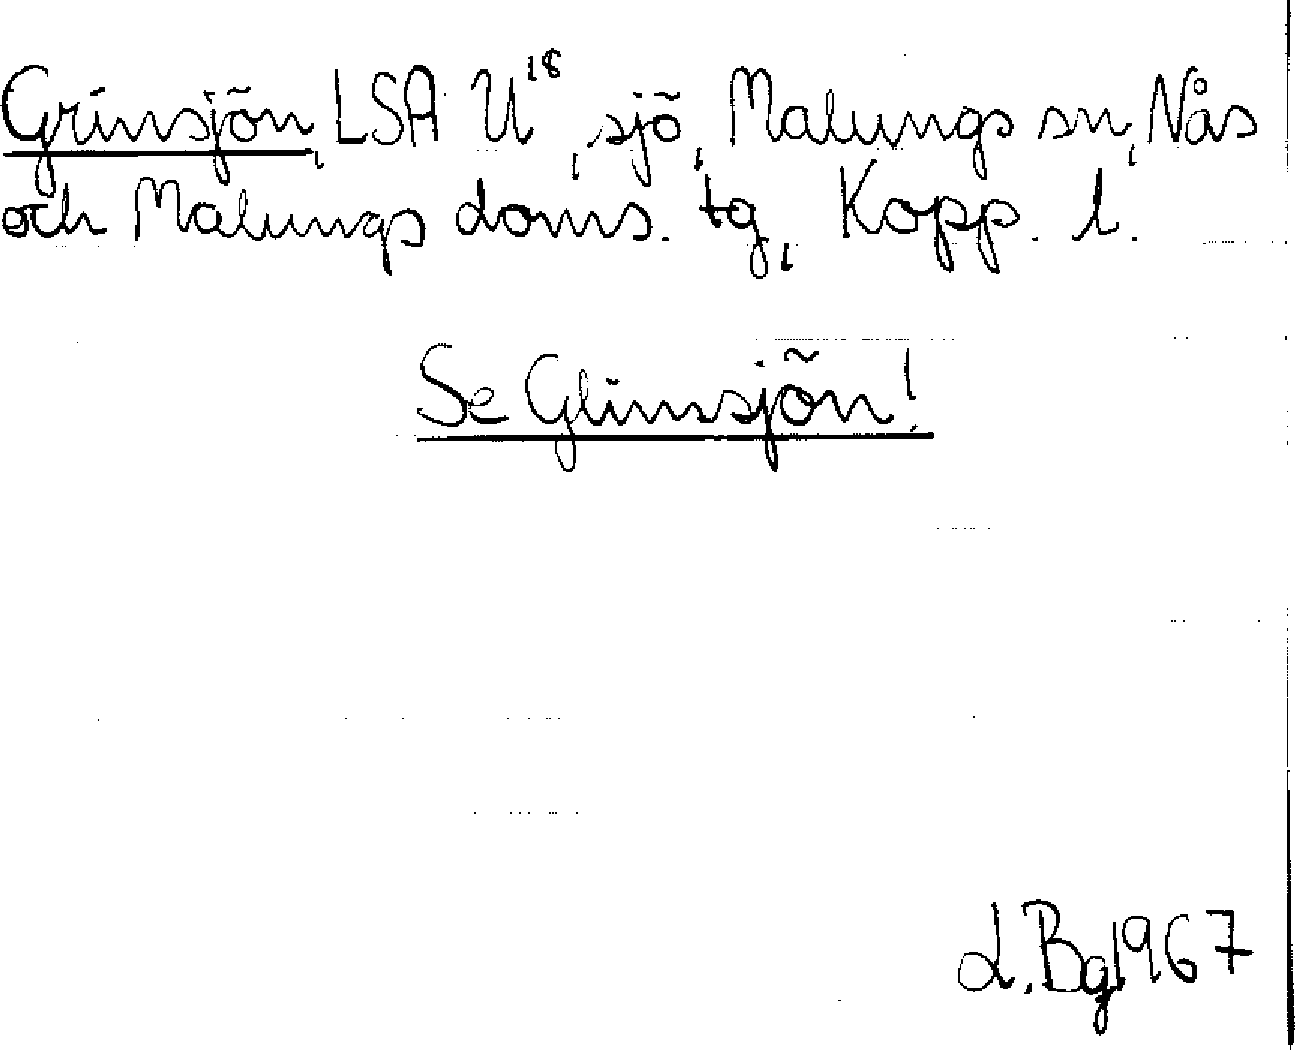 Grinsjön, LSA U¹⁸, sjö, Malungs sn, Nås
och Malungs doms. tg, Kopp. l.
Se Glimsjön!
L. Bg 1967